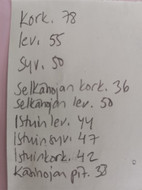 Kork. 78
lev. 55
syv. 50
Selkänojan kork. 36
Selkänojan lev. 50
Istuin lev. 44
Istuinsyv. 47
Istuinkork. 42
Käsinojan pit. 38